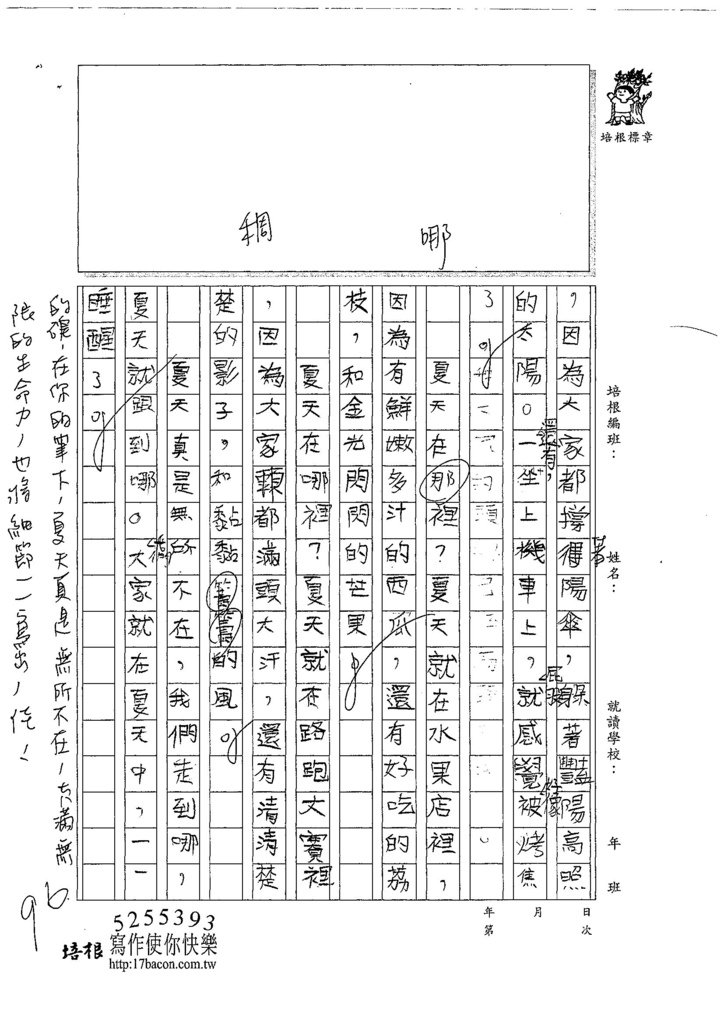 培根標章
稠
哪
培根編班：
姓名：
就讀學校：
年 班
，因為大家都撐得陽傘，躲著豔陽高照
著
的太陽。一坐上機車上，就感覺被烤焦
還有，
屁股
好像
了
夏天在那裡？夏天就在水果店裡，
因為有鮮嫩多汁的西瓜，還有好吃的荔
枝，和金光閃閃的芒果。
夏天在哪裡？夏天就在路跑大賽裡
，因為大家顆都滿頭大汗，還有清清楚
楚的影子，和黏黏的風。
夏天真是無所不在，我們走到哪，
夏天就跟到哪。大家就在夏天中，一一
睡醒了。
的確，在你的筆下，夏天真是無所不在，充滿無
限的生命力，也將細節一一寫出，佳！
96
日 月 年
次 第
5255393
培根 寫作使你快樂
http:17bacon.com.tw